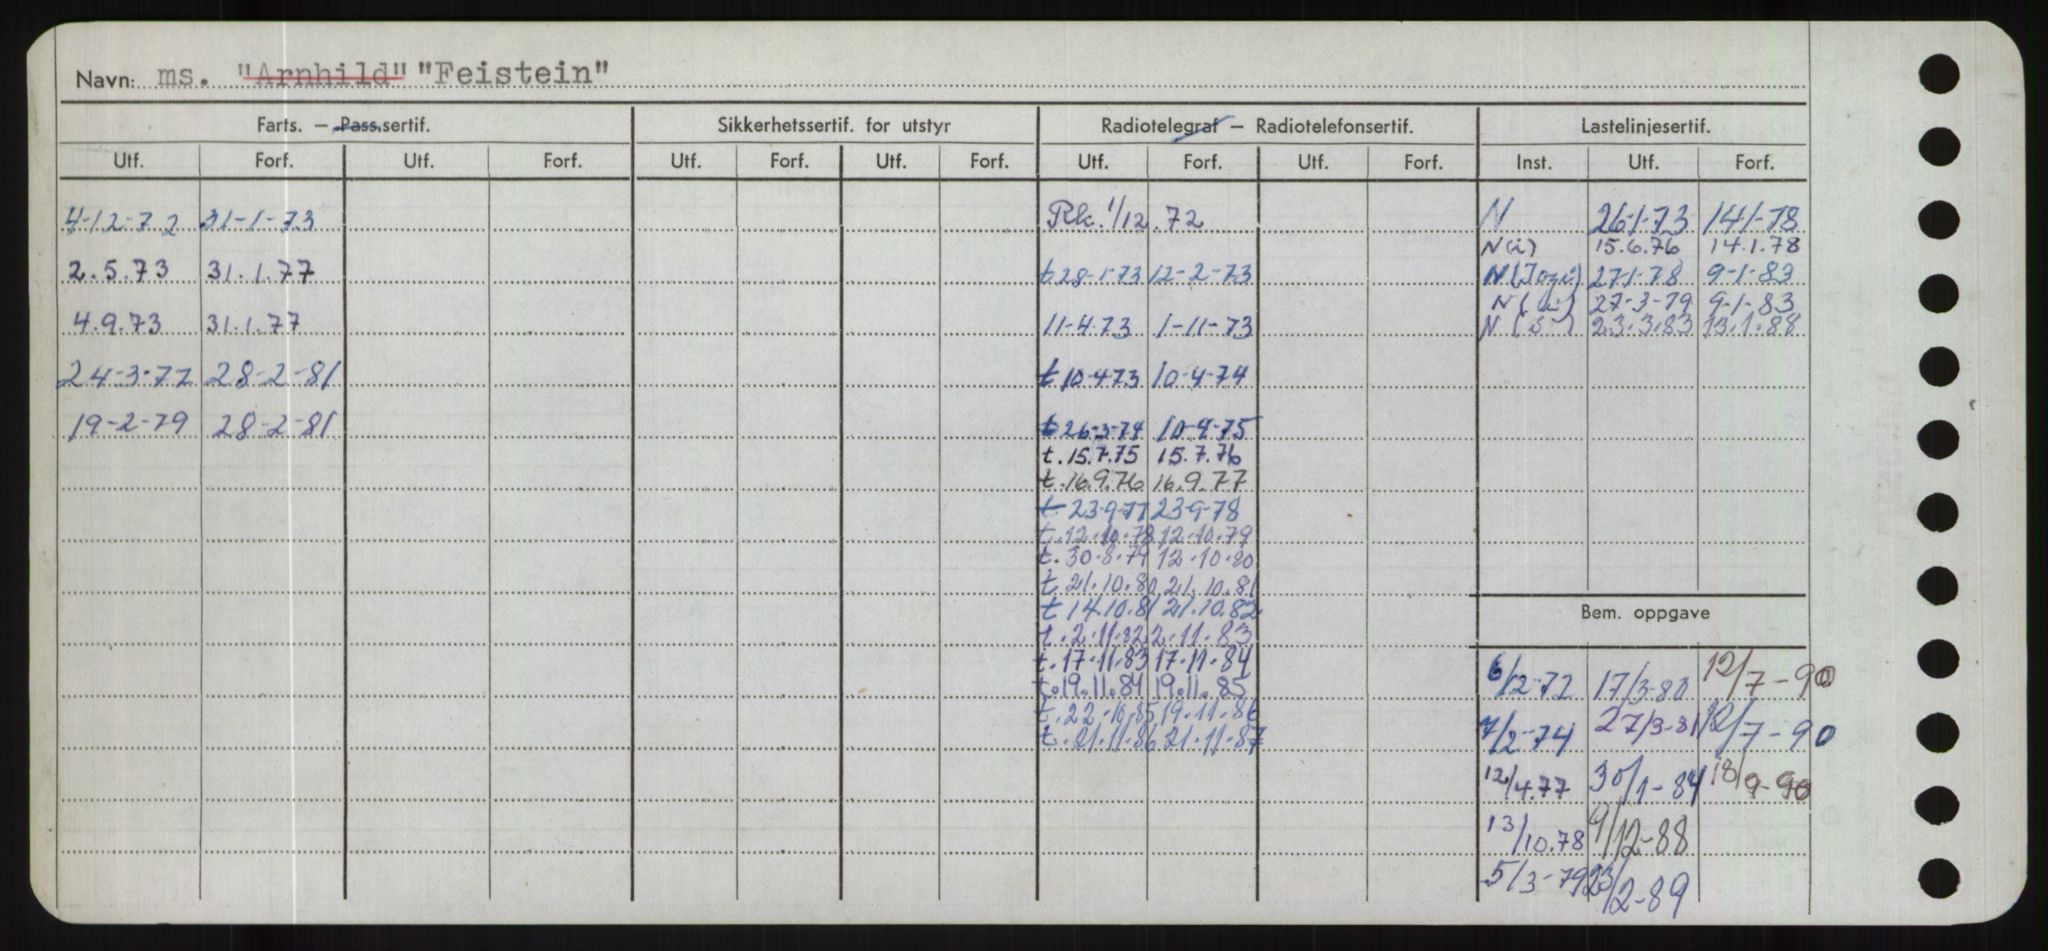 Navn: ms. "Arnhild" "Feistein"
Farts. — Pass.sertif. Sikkerhetssertif. for utstyr Radiotelegraf — Radiotelefonsertif. Lastelinjesertif.
Utf. Forf. Utf. Forf. Utf. Forf. Utf. Forf. Utf. Forf. Utf. Forf. Inst. Utf. Forf.
4-12-72 31-1-73 Rk. 1/12.72 N 26-1-73 14-1-78
N(i) 15.6.76 14.1.78
2.5.73 31.1.77 t 28-1-73 12-2-73 27-1-78 9-1-83
27-3-79 9-1-83
4.9.73 31.1.77 11-4-73 1-11-73 N 23.3.83 13.1.88
24-3-77 28-2-81 t 10-4-73 10-4-74
19-2-79 28-2-81 t 26-3-74 10-4-75
t. 15.7.75 15.7.76
t. 16.9.76 16.9.77
t 23-9-77 23-9-78
t. 12.10.78 12.10.79
t. 30.8.79 12.10.80
t 21.10.80 21.10.81
t 14.10.81 21.10.82
Bem. oppgave
t. 2.11.82 2.11.83
t. 17.11.83 17.11.84
6/12-72 17/3-80 12/7-90
t. 19.11.84 19.11.85
t. 22.10.85 19.11.86
7/2-74 27/3-81 12/7-90
t. 21.11.86 21.11.87
12/4.77 30/1-84 18/9-90
13/10.78 9/12-88
5/3-79 23/2-89